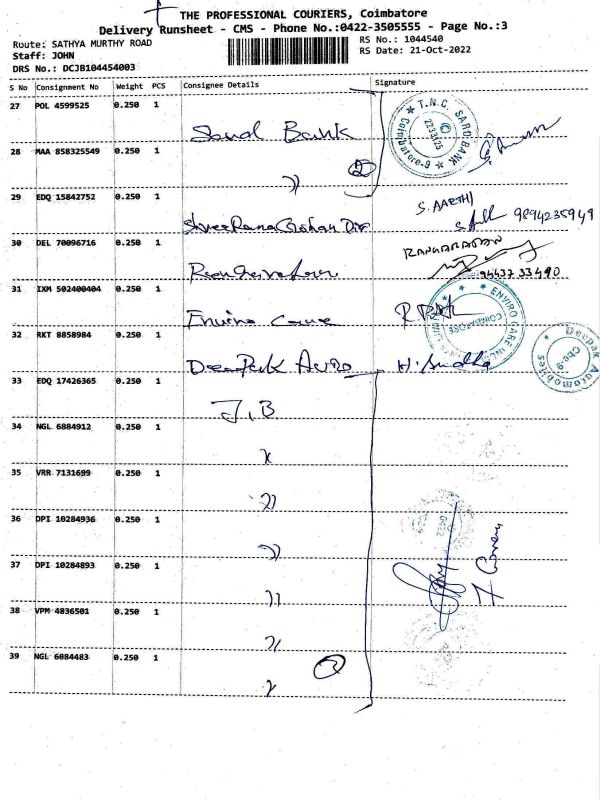 THE PROFESSIONAL COURIERS, Coimbatore
Delivery Runsheet - CMS - Phone No.:0422-3505555 - Page No.:3
Route: SATHYA MURTHY ROAD
RS No.: 1044540
Staff: JOHN
RS Date: 21-Oct-2022
DRS No.: DCJB104454003
S No Consignment No Weight PCS Consignee Details Signature
27 POL 4599525 0.250 1
Bank
T.N.C. SARD BANK
Coimbatore-9
28 MAA 858325549 0.250 1
29 EDQ 15842752 0.250 1
S. AARTHI
9894235949
30 DEL 70096716 0.250 1
94437 33490
31 IXM 502400404 0.250 1
ENVIRO CARE
COIMBATORE
32 RKT 8858984 0.250 1
Deepak Auto
H. Sudha
Deepak Automobiles
Cbe-9.
33 EDQ 17426365 0.250 1
J.B
34 NGL 6884912 0.250 1
35 VRR 7131699 0.250 1
36 DPI 10284936 0.250 1
37 DPI 10284893 0.250 1
38 VPM 4836501 0.250 1
39 NGL 6084483 0.250 1